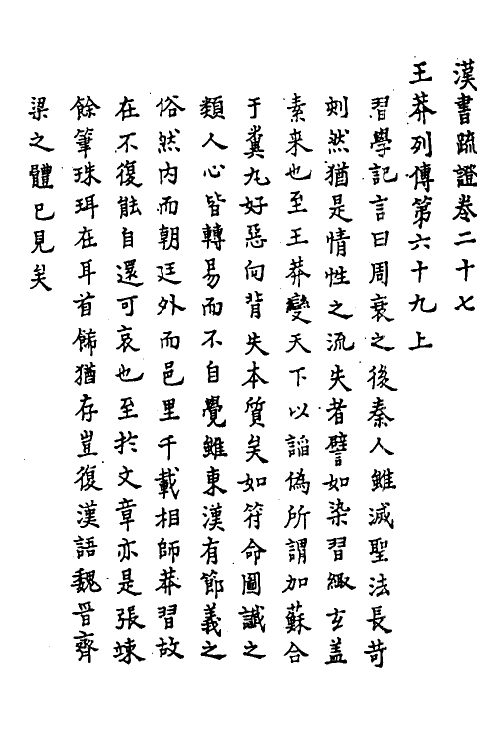 漢書疏證卷二十七
王莽列傳第六十九上
習學記言曰周衰之後秦人雖滅聖法長苛
刻然猶是情性之流失者譬如染習緅玄盖
素来也至王莽變天下以謟偽所謂加蘇合
于糞丸好惡向背失本質矣如符命圖讖之
類人心皆轉易而不自覺雖東漢有節義之
俗然内而朝廷外而邑里千載相師莽習故
在不復能自還可哀也至扵文章亦是張竦
餘筆珠珥在耳首飾猶存豈復漢語魏晉齊
梁之體已見矣